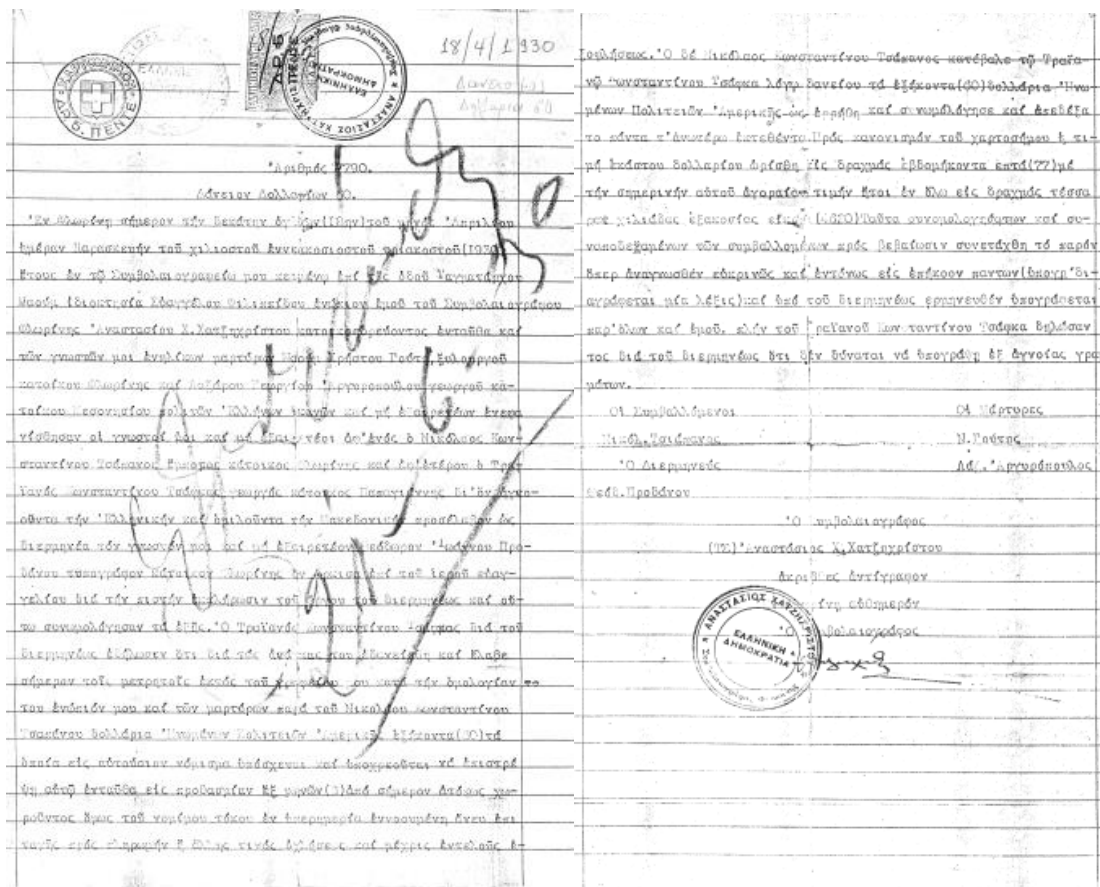 18/4/1930
Δάνειο
ΔΡΧ. ΠΕΝΤΕ
ΑΝΑΣΤΑΣΙΟΣ
ΕΛΛΗΝΙΚΗ
ΔΗΜΟΚΡΑΤΙΑ
Ἀριθμός 7790.
Δάνειον Δολλαρίων 60.
Ἐν Φλωρίνῃ σήμερον τήν δεκάτην ὀγδόην(18ην)τοῦ μηνός Ἀπριλίου
ἡμέραν Παρασκευήν τοῦ χιλιοστοῦ ἐννεακοσιοστοῦ τριακοστοῦ(1930)
ἔτους ἐν τῷ Συμβολαιογραφείῳ μου κειμένῳ ἐπί τῆς ὁδοῦ Ταγματάρχου
Ναούμ ἰδιοκτησία Εὐαγγέλου Φιλιππίδου ἐνώπιον ἐμοῦ τοῦ Συμβολαιογράφου
Φλωρίνης Ἀναστασίου Χ.Χατζηχρίστου κατοικοεδρεύοντος ἐνταῦθα καί
τῶν γνωστῶν μοι ἐνηλίκων μαρτύρων Χρήστου Γούτα,ξυλουργοῦ
κατοίκου Φλωρίνης καί Λαζάρου Γεωργίου Ἀργυροπούλου γεωργοῦ κα-
τοίκου Μεσονησίου πολιτῶν Ἑλλήνων καί μή ἐξαιρετέων ἐνεφα
νίσθησαν οἱ γνωστοί μοι καί μή ἐξαιρετέοι ἀφ'ἑνός ὁ Νικόλαος Κων-
σταντίνου Τσάπανος ἔμπορος κάτοικος Φλωρίνης καί ἀφ'ἑτέρου ὁ Τρα-
ϊανός Κωνσταντίνου Τσάφκας γεωργός κάτοικος Παπαγιάννης δι'ὅν ἀγνο-
οῦντα τήν Ἑλληνικήν καί ὁμιλοῦντα τήν Μακεδονικήν προσέλαβον ὡς
διερμηνέα τόν γνωστόν μοι καί μή ἐξαιρετέον Θεόδωρον Ἰωάννου Προ-
δάνου τυπογράφον κάτοικον Φλωρίνης ὅν ὥρκισα ἐπί τοῦ ἱεροῦ εὐαγ-
γελίου διά τήν πιστήν ἐκπλήρωσιν τοῦ ἔργου τοῦ διερμηνέως καί οὕ-
τω συνωμολόγησαν τά ἑξῆς.Ὁ Τραϊανός Κωνσταντίνου Τσάφκας διά τοῦ
διερμηνέως ἐδήλωσεν ὅτι διά τάς ἀνάγκας του ἐδανείσθη καί ἔλαβε
σήμερον τοῖς μετρητοῖς ἐκτός τοῦ γραφείου μου κατά τήν ὁμολογίαν
του ἐνώπιόν μου καί τῶν μαρτύρων παρά τοῦ Νικολάου Κωνσταντίνου
Τσαπάνου δολλάρια Ἡνωμένων Πολιτειῶν Ἀμερικῆς ἑξήκοντα(60)τά
ὁποῖα εἰς αὐτούσιον νόμισμα ὑπόσχεται καί ὑποχρεοῦται νά ἐπιστρέ
ψῃ αὐτῷ ἐνταῦθα εἰς προθεσμίαν ἕξ μηνῶν ἀπό σήμερον ἀτόκως χω-
ροῦντος ὅμως τοῦ νομίμου τόκου ἐν ὑπερημερίᾳ ἐννοουμένῃ ἄνευ ἐπι
ταγῆς πρός πληρωμήν ἤ ἄλλης τινός ὀχλήσεως καί μέχρις ἐντελοῦς ἐ-
ξοφλήσεως.Ὁ δέ Νικόλαος Κωνσταντίνου Τσάπανος κατέβαλε τῷ Τραϊα-
νῷ Κωνσταντίνου Τσάφκα λόγῳ δανείου τά ἑξήκοντα(60)δολλάρια Ἡνω
μένων Πολιτειῶν Ἀμερικῆς ὡς ἐρρήθη καί συνωμολόγησε καί ἀπεδέξα
το πάντα τ'ἀνωτέρω ἐκτεθέντα.Πρός κανονισμόν τοῦ χαρτοσήμου ἡ τι-
μή ἑκάστου δολλαρίου ὡρίσθη εἰς δραχμάς ἑβδομήκοντα ἑπτά(77)μέ
τήν σημερινήν αὐτοῦ ἀγοραίαν τιμήν ἤτοι ἐν ὅλῳ εἰς δραχμάς τέσσα
ρας χιλιάδας ἑξακοσίας εἴκοσι(4620)Ταῦτα συνομολογησάντων καί συ-
ναποδεξαμένων τῶν συμβαλλομένων πρός βεβαίωσιν συνετάχθη τό παρόν
ὅπερ ἀναγνωσθέν εὐκρινῶς καί ἐντόνως εἰς ἐπήκοον παντων(ὑπογρ'δι-
αγράφεται μία λέξις)καί ὑπό τοῦ διερμηνέως ερμηνευθέν ὑπογράφεται
παρ'ὅλων καί ἐμοῦ, πλήν τοῦ Τραϊανοῦ Κωνσταντίνου Τσάφκα δηλώσαν
τος διά τοῦ διερμηνέως ὅτι δέν δύναται νά ὑπογράψῃ ἐξ ἀγνοίας γρα
μάτων.
Οἱ Συμβαλλόμενοι Οἱ Μάρτυρες
Νικόλ.Τσιάπανος Ν.Γούτας
Ὁ Διερμηνεύς Λάζ.Ἀργυρόπουλος
Θεόδ.Προδάνου
Ὁ Συμβολαιογράφος
(ΤΣ)Ἀναστάσιος Χ.Χατζηχρίστου
Ἀκριβές ἀντίγραφον
αὐθημερόν
Ὁ Συμβολαιογράφος
ΑΝΑΣΤΑΣΙΟΣ ΧΑΤΖΗΧΡΙΣΤΟΥ
ΕΛΛΗΝΙΚΗ
ΔΗΜΟΚΡΑΤΙΑ